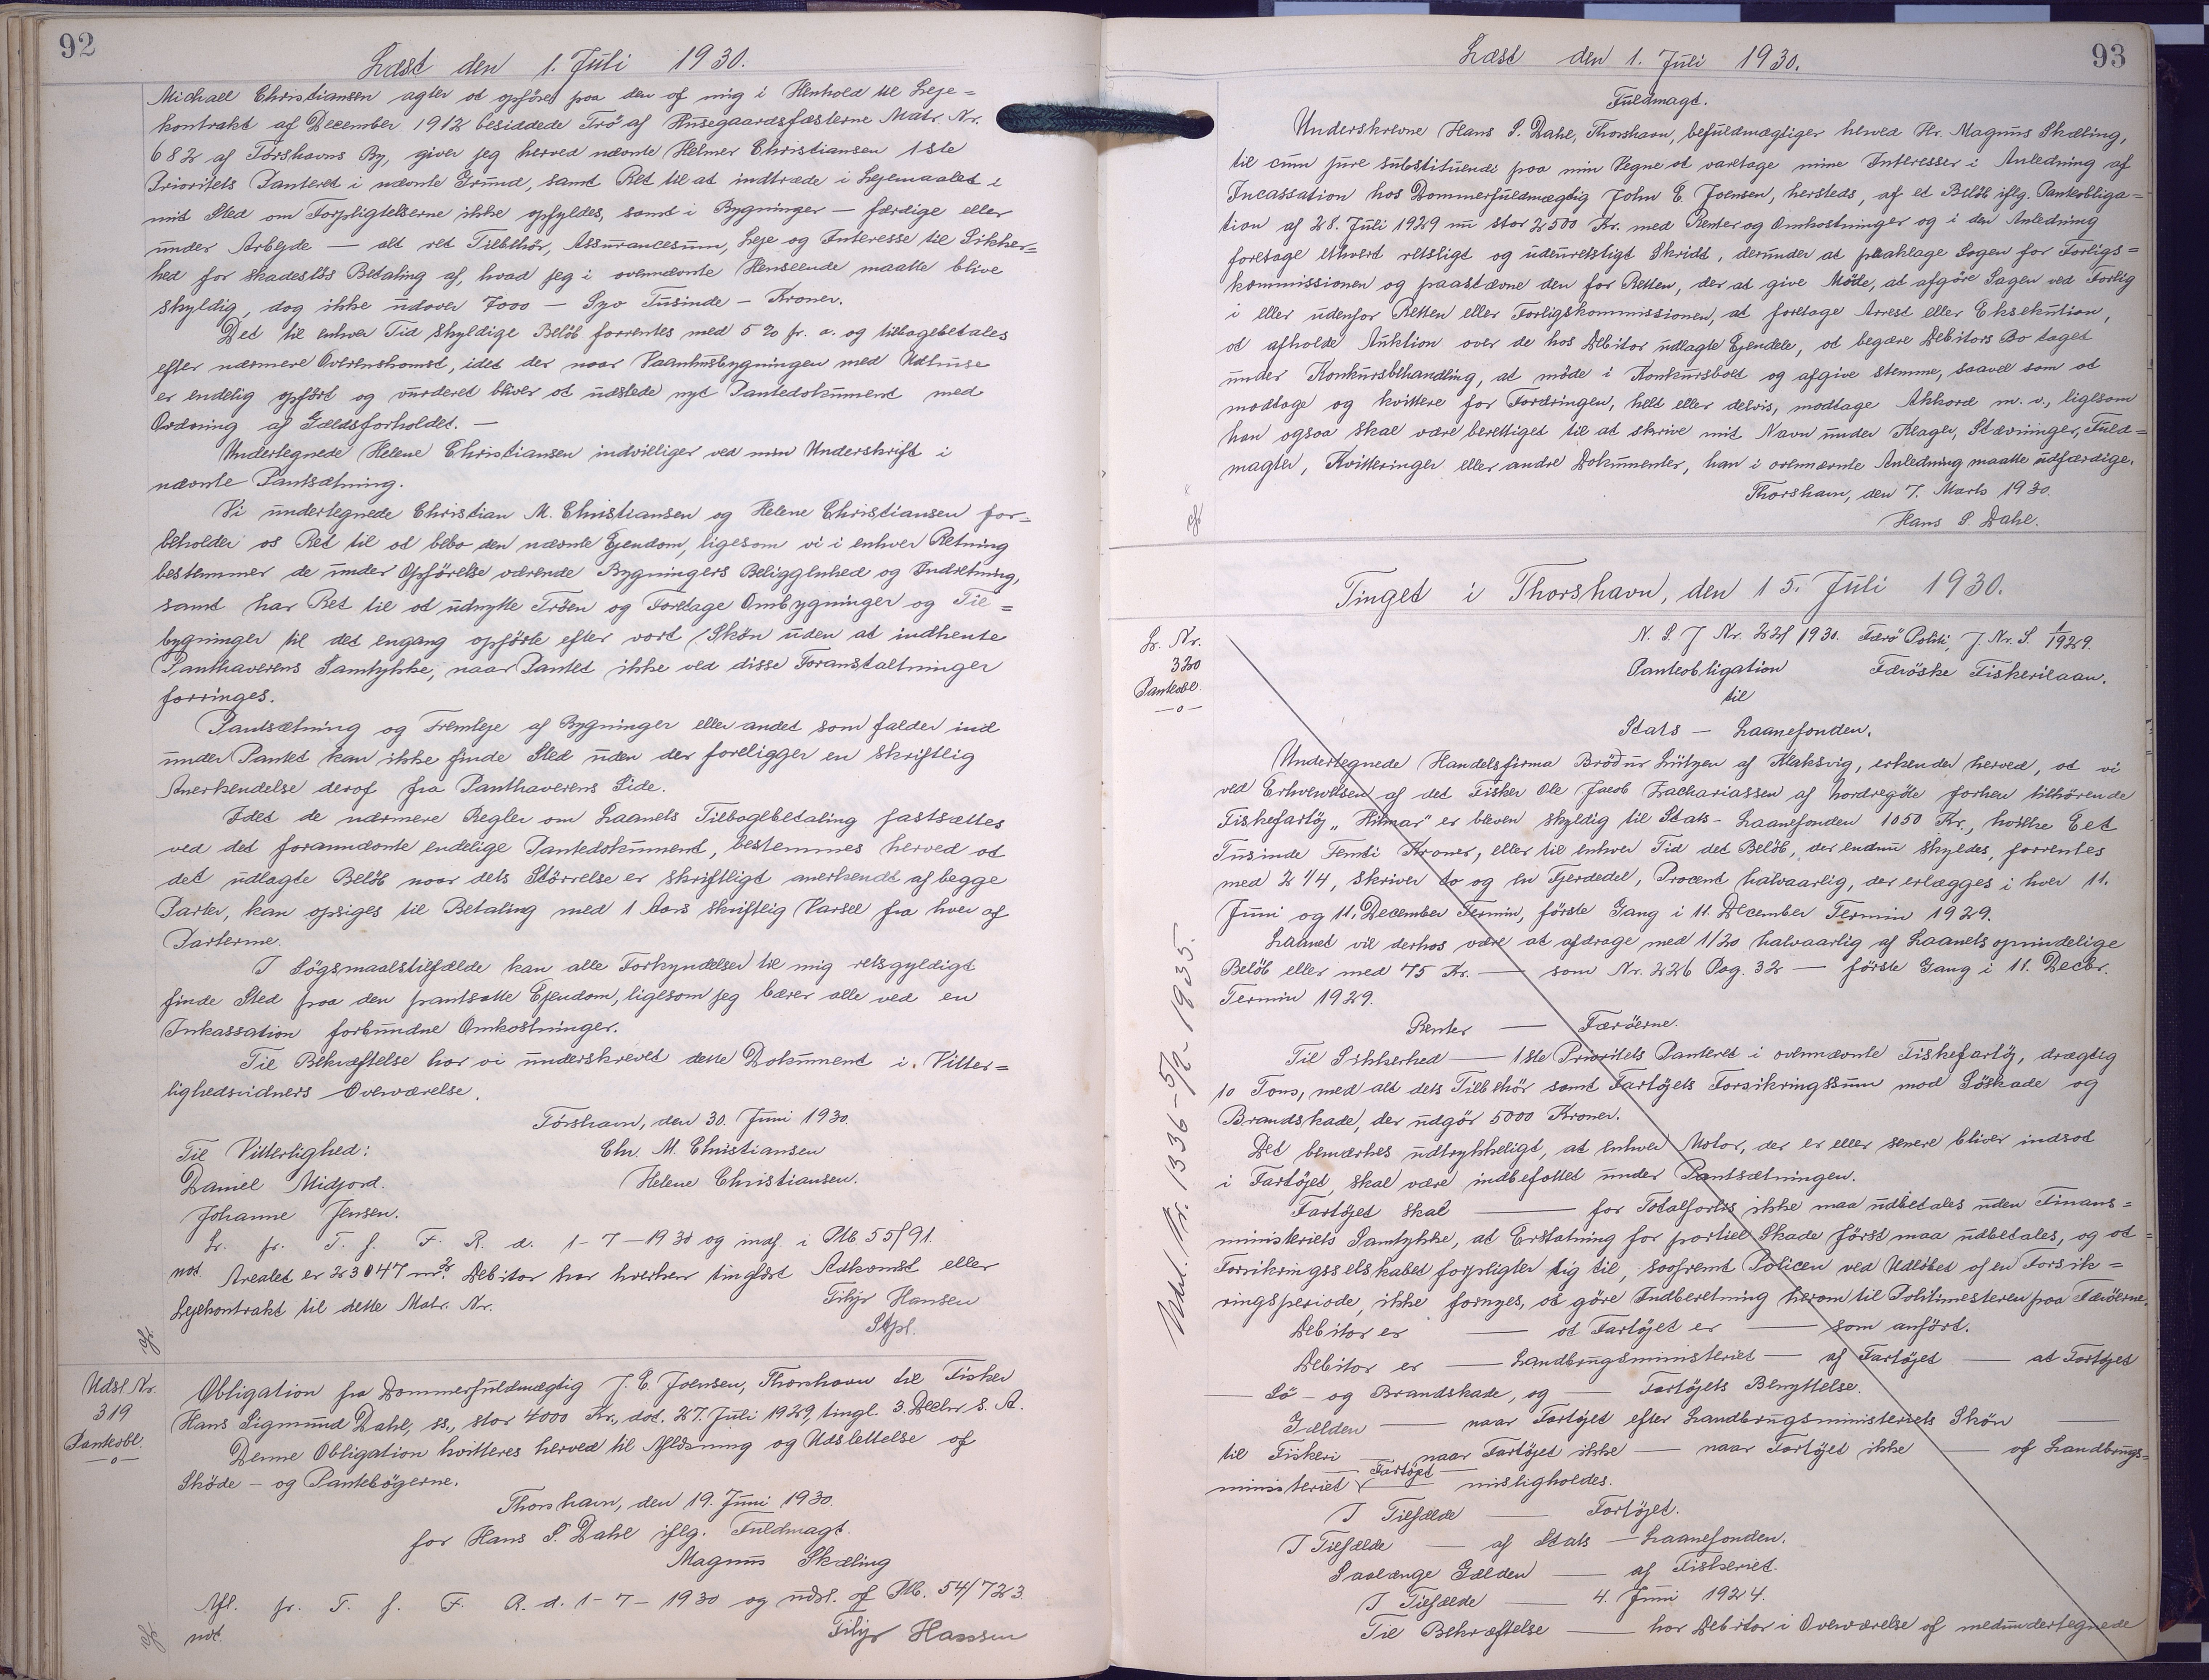 92
Læst den 1. Juli 1930.
Michael Christiansen agter at opføre paa den af mig i Henhold til Leje=
kontrakt af December 1912 besiddede Trö af Husegaardsfæsterne Matr. Nr.
682 af Torshavns By, giver jeg herved nævnte Helmer Christiansen 1ste
Prioritets Panteret i nævnte Grund, samt Ret til at indtræde i Lejemaalet i
mit Sted om Forpligtelserne ikke opfyldes, samt i Bygninger — færdige eller
under Arbejde — alt ret Tilbehör, Assurancesum, Leje og Interesse til Sikker=
hed for skadeslös Betaling af, hvad jeg i ovennævnte Henseende maatte blive
skyldig, dog ikke udover 7000 — Syv Tusinde — Kroner.
Det til enhver Tid skyldige Belöb forrentes med 5 % pr. a. og tilbagebetales
efter nærmere Overenskomst, idet der naar Vaaninsbygningen med Udhuse
er endelig opfört og vurderet bliver at udstede nyt Pantedokument med
Ordning af Gældsforholdet. —
Undertegnede Helene Christiansen indvilliger ved min Underskrift i
nævnte Pantsætning.
Vi undertegnede Christian M. Christiansen og Helene Christiansen for=
beholder os Ret til at bebo den nævnte Ejendom, ligesom vi i enhver Retning
bestemmer de under Opförelse værende Bygningers Beliggenhed og Indretning,
samt har Ret til at udnytte Tröen og Foretage Ombygninger og Til=
bygninger til det engang opförte efter vort Skön uden at indhente
Panthaverens Samtykke, naar Pantet ikke ved disse Foranstaltninger
forringes.
Pantsætning og Fremleje af Bygninger eller andet som falder ind
under Pantet kan ikke finde Sted uden der foreligger en skriftlig
Anerkendelse deraf fra Panthaverens Side.
Idet de nærmere Regler om Laanets Tilbagebetaling fastsættes
ved det forannævnte endelige Pantedokument, bestemmes herved at
det udlagte Belöb naar dets Störrelse er skriftligt anerkendt af begge
Parter, kan opsiges til Betaling med 1 Aars skriftlig Varsel fra hver af
Parterne.
I Sögsmaalstilfælde kan alle Forkyndelser til mig retsgyldigt
finde Sted paa den pantsatte Ejendom, ligesom jeg bærer alle ved en
Inkassation forbundne Omkostninger.
Til Bekræftelse har vi underskrevet dette Dokument i Vitter=
lighedsvidners Overværelse.
Tórshavn, den 30. Juni 1930.
Til Vitterlighed: Chr. M. Christiansen
Daniel Midjord. Helene Christiansen.
Johanne Jensen.
Lr. pr. T. f. F. R. d. 1-7-1930 og indf. i Ptb. 55/91.
not. Arealet er 23047 m². Debitor har hverken tinglæst Adkomst eller
Lejekontrakt til dette Matr. Nr. Filip Hansen
Stpl.
Udsl. Nr.
319
Panteobl.
—o—
Obligation fra Dommerfuldmægtig J. E. Joensen, Thorshavn til Fisker
Hans Sigmund Dahl, ss., stor 4000 Kr., dat. 27. Juli 1929, tingl. 3. Decbr. s. A.
Denne Obligation kvitteres herved til Aflæsning og Udslettelse af
Sköde- og Pantebögerne.
Thorshavn, den 19. Juni 1930.
for Hans S. Dahl iflg. Fuldmagt.
Magnus Skæling
Afl. pr. T. f. F. R. d. 1-7-1930 og udsl. af Ptb. 54/723
not. Filip Hansen
93
Læst den 1. Juli 1930.
Fuldmagt.
Underskrevne Hans S. Dahl, Thorshavn, befuldmægtiger herved Hr. Magnus Skæling,
til cum jure substituendi paa min Vegne at varetage mine Interesser i Anledning af
Incassation hos Dommerfuldmægtig John E. Joensen, hersteds, af et Belöb iflg. Panteobliga=
tion af 28. Juli 1929 nu stor 2500 Kr. med Renter og Omkostninger og i den Anledning
foretage ethvert retsligt og udenretsligt Skridt, derunder at paaklage Sagen for Forligs=
kommissionen og paastævne den for Retten, der at give Möde, at afgöre Sagen ved Forlig
i eller udenfor Retten eller Forligskommissionen, at foretage Arrest eller Eksekution,
at afholde Auktion over de hos Debitor udlagte Ejendele, at begære Debitors Bo taget
under Konkursbehandling, at möde i Konkursboet og afgive stemme, saavel som at
modtage og kvittere for Fordringen, helt eller delvis, modtage Akkord m. v., ligesom
han ogsaa skal være berettiget til at skrive mit Navn under Klager, Stævninger, Fuld=
magter, Kvitteringer eller andre Dokumenter, han i ovennævnte Anledning maatte udfærdige.
Thorshavn, den 7. Marts 1930.
Hans S. Dahl.
Tinget i Thorshavn, den 15. Juli 1930.
Lr. Nr.
320
Panteobl.
—o—
N. S. J Nr. 221/1930. Færö Politi, J. Nr. S. 1/1929.
Panteobligation Færöske Fiskerilaan.
til
Stats — Laanefonden.
Undertegnede Handelsfirma Brödur Lützen af Klaksvig, erkender herved, at vi
ved Erhvervelsen af det Fisker Ole Jacob Zachariassen af Nordregöte forhen tilhörende
Fiskefartöj „Hilmar" er bleven skyldig til Stats-Laanefonden 1050 Kr., hvilke Eet
Tusinde Femti Kroner, eller til enhver Tid det Belöb, der endnu skyldes, forrentes
med 2 1/4, skriver to og en Fjerdedel, Procent halvaarlig, der erlægges i hver 11.
Juni og 11. December Termin, förste Gang i 11. December Termin 1929.
Laanet vil derhos være at afdrage med 1/20 halvaarlig af Laanets oprindelige
Belöb eller med 75 Kr. — som Nr. 226 Pag. 32 — förste Gang i 11. Decbr.
Termin 1929.
Renter — Færöerne.
Til Sikkerhed — 1ste Prioritets Panteret i ovennævnte Fiskefartöj, drægtig
10 Tons, med alt dets Tilbehör samt Fartöjets Forsikringssum mod Söskade og
Brandskade, der udgör 5000 Kroner.
Det bemærkes udtrykkeligt, at enhver Motor, der er eller senere bliver indsat
i Fartöjet, skal være indbefattet under Pantsætningen.
Fartöjet skal — for Totalforlis ikke maa udbetales uden Finans=
ministeriets Samtykke, at Erstatning for partiel Skade först maa udbetales, og at
Forsikringsselskabet forpligter sig til, saafremt Policen ved Udlöbet af en Forsik=
ringsperiode, ikke fornyes, at göre Indberetning herom til Politimesteren paa Færöerne.
Debitor er — at Fartöjet er — som anfört.
Debitor er — Landbrugsministeriet — af Fartöjet — at Fartöjet
— Sö- og Brandskade, og — Fartöjets Benyttelse.
Gælden — naar Fartöjet efter Landbrugsministeriets Skön —
til Fiskeri — naar Fartöjet ikke — naar Fartöjet ikke — af Landbrugs=
ministeriet — Fartöjet — misligholdes.
I Tilfælde — Fartöjet.
I Tilfælde — af Stats — Laanefonden.
Saalænge Gælden — af Fiskeriet.
I Tilfælde — 4. Juni 1924.
Til Bekræftelse — har Debitor i Overværelse af medundertegnede
Udsl. Nr. 1336-5/2-1935.